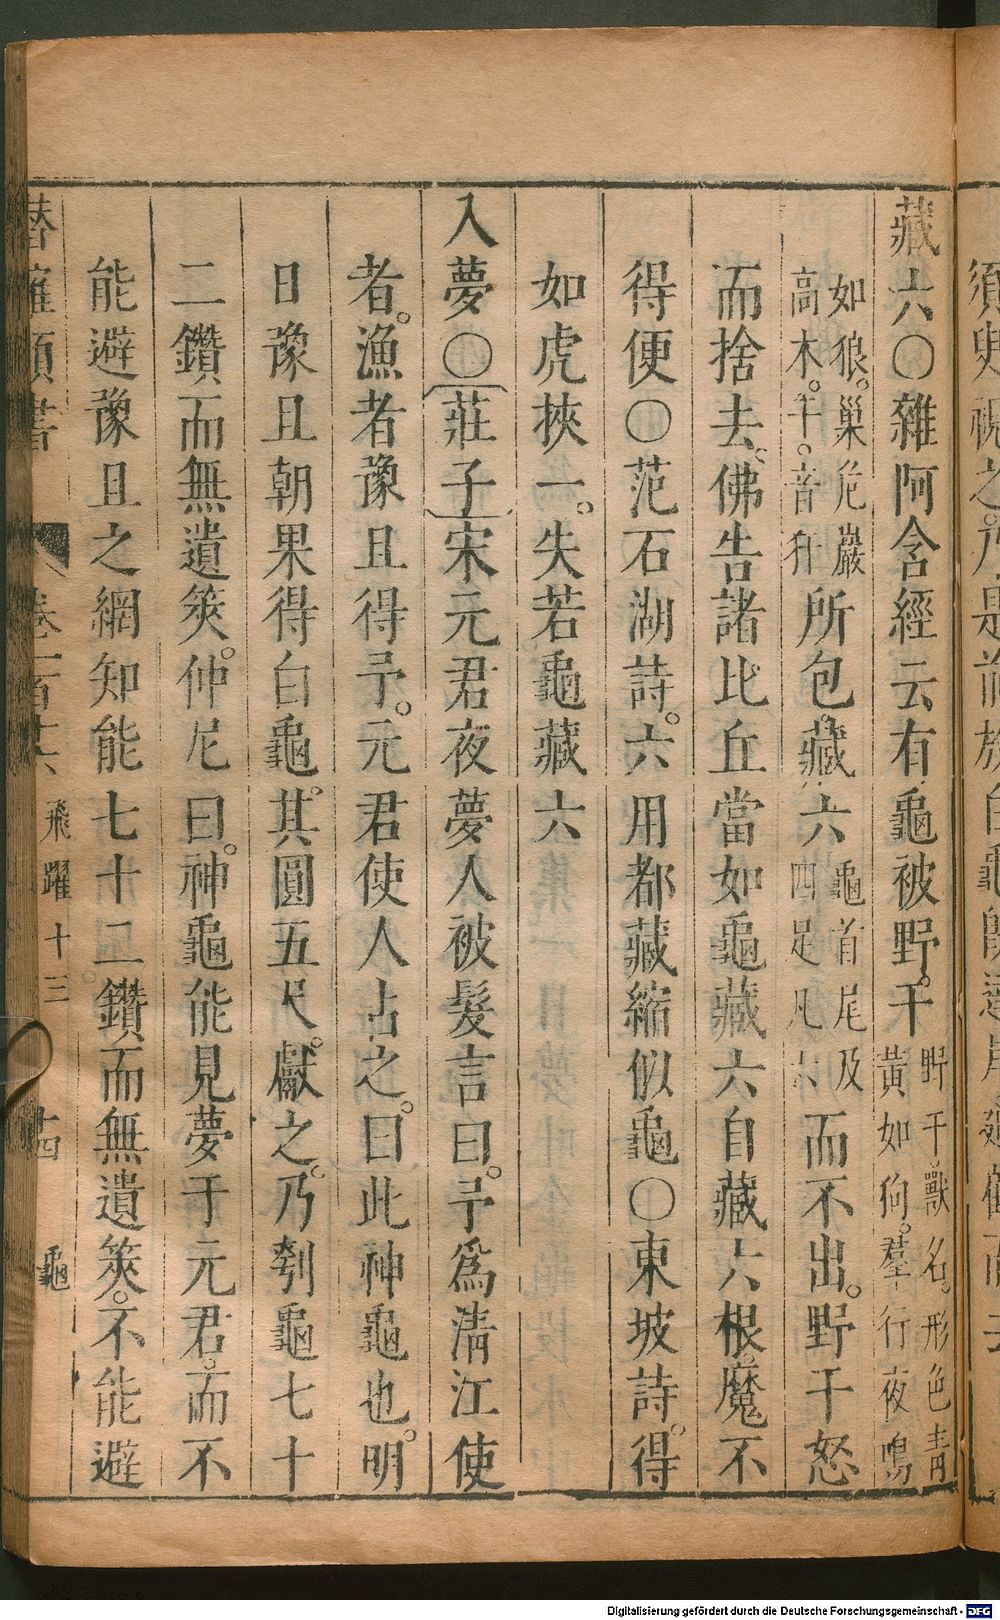 藏六〇雜阿含經云有龜被野。干野干。獸名。形色青黃如狗。羣行夜鳴
如狼。巢危巖高木。干。音犴所包。藏六龜首尾及四足凡六而不出。野干怒
而捨去。佛告諸比丘當如龜藏六自藏六根。魔不
得便〇范石湖詩。六用都藏縮似龜〇東坡詩。得
如虎挾一。失若龜藏六
入夢〇莊子宋元君夜夢人被髮言曰。予爲淸江使
者。漁者豫且得予。元君使人占之。曰此神龜也。明
日豫且朝果得白龜。其圓五尺。獻之。乃刳龜七十
二鑽而無遺筴。仲尼曰。神龜能見夢于元君。而不
能避豫且之網知能七十二鑽而無遺筴。不能避
潛確類書 卷一百十六 飛躍十三 十四 龜
Digitalisierung gefördert durch die Deutsche Forschungsgemeinschaft - DFG